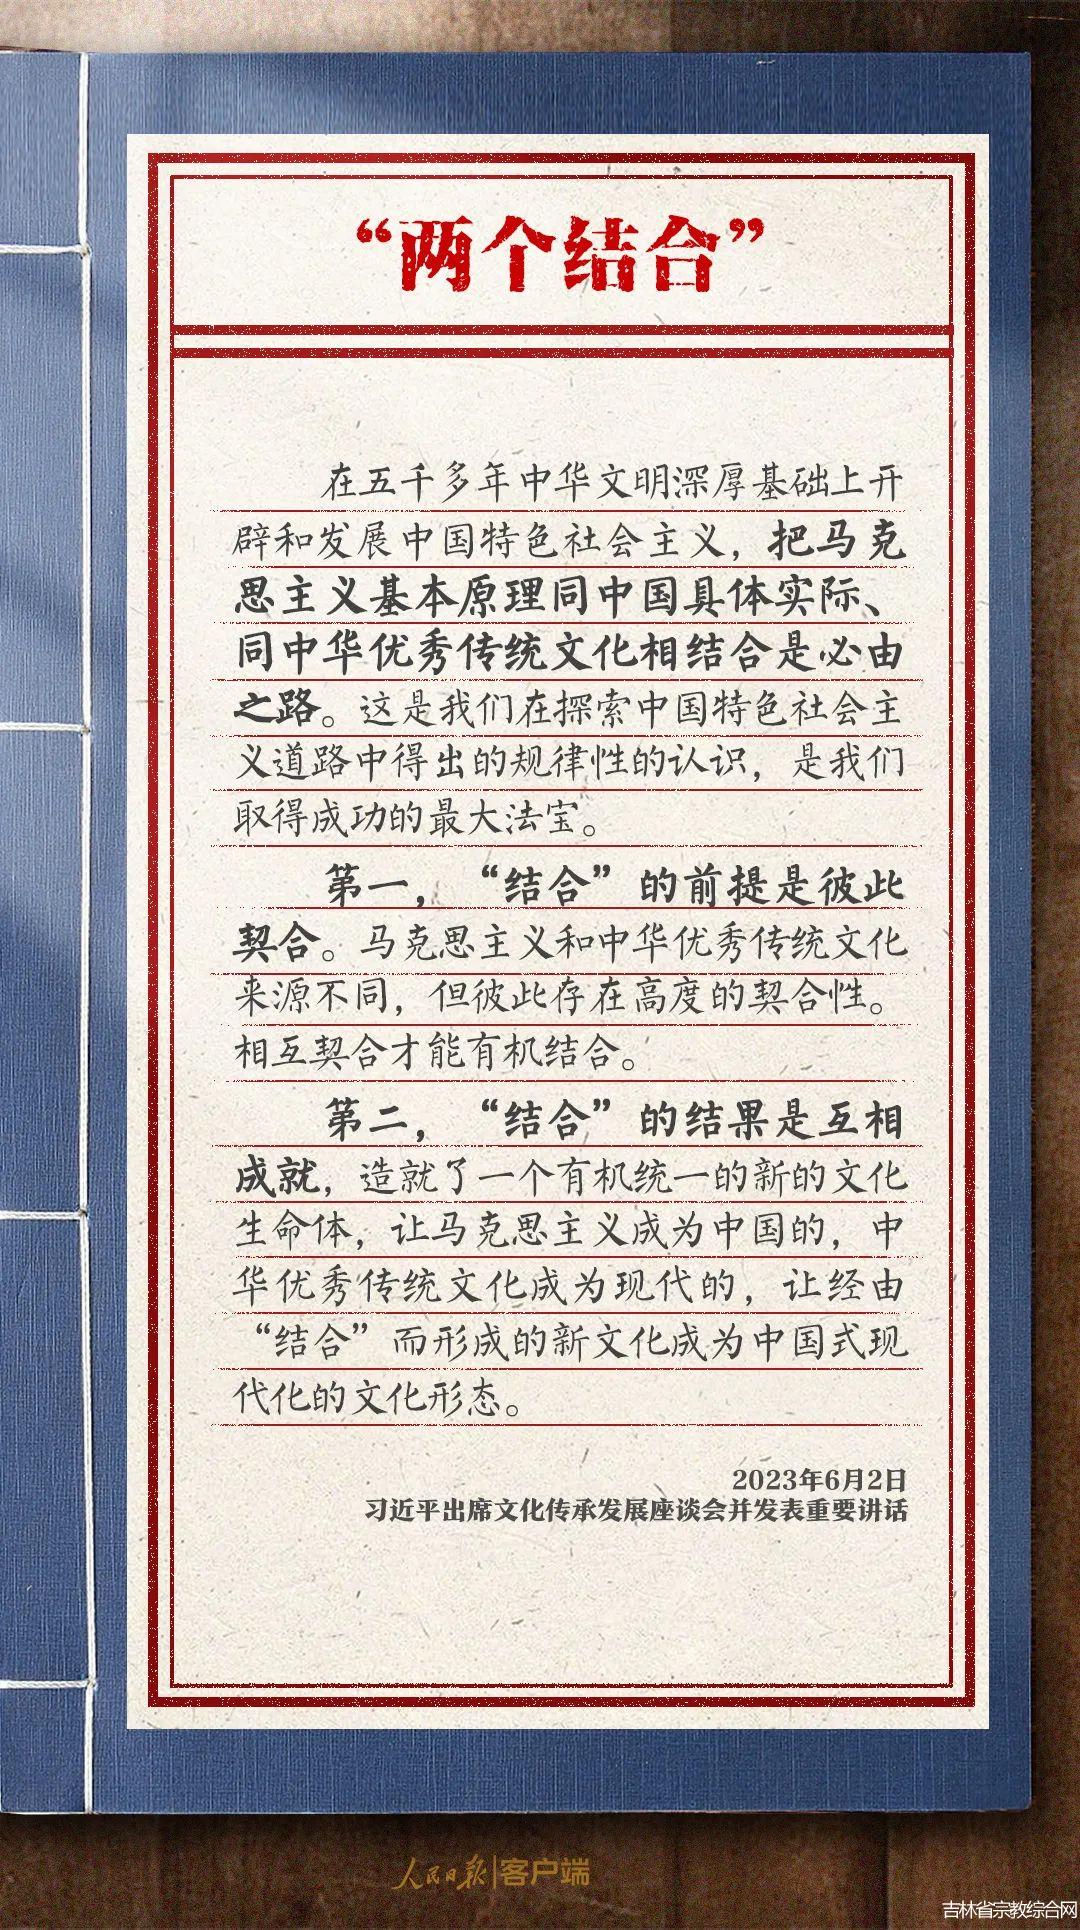 “两个结合”
在五千多年中华文明深厚基础上开
辟和发展中国特色社会主义，把马克
思主义基本原理同中国具体实际、
同中华优秀传统文化相结合是必由
之路。这是我们在探索中国特色社会主
义道路中得出的规律性的认识，是我们
取得成功的最大法宝。
第一，“结合”的前提是彼此
契合。马克思主义和中华优秀传统文化
来源不同，但彼此存在高度的契合性。
相互契合才能有机结合。
第二，“结合”的结果是互相
成就，造就了一个有机统一的新的文化
生命体，让马克思主义成为中国的，中
华优秀传统文化成为现代的，让经由
“结合”而形成的新文化成为中国式现
代化的文化形态。
2023年6月2日
习近平出席文化传承发展座谈会并发表重要讲话
人民日报|客户端
吉林省宗教综合网